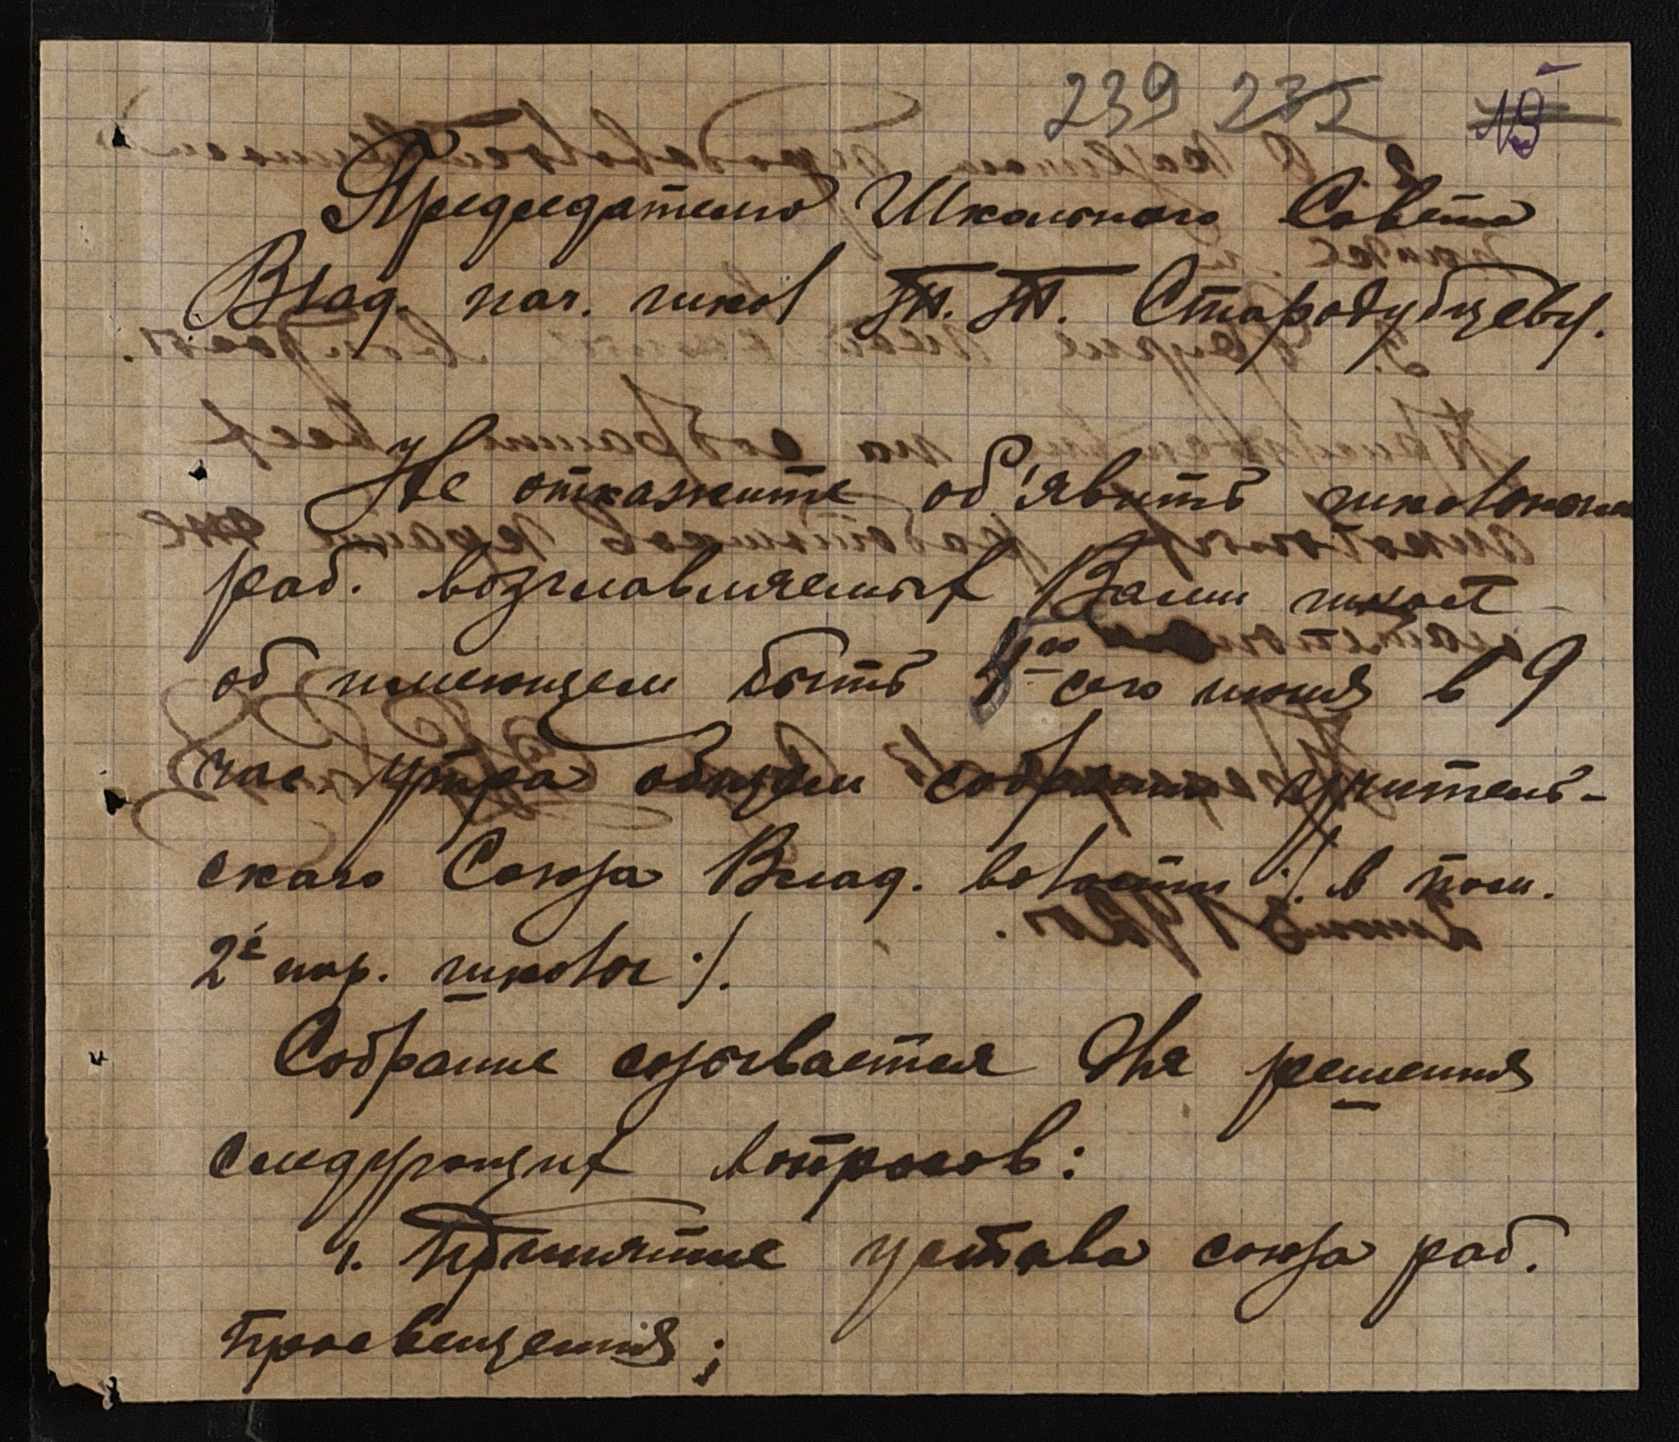 239 232 19
Председателю Школьного Совета
Влад. нач. школ П. П. Стародубцеву.
Не откажите об'явить школьным
раб. возглавляемых Вами школ
об имеющем быть сего июня в 9
час утра общем собрании учитель-
скаго Союза Влад. волости /. в пом.
2й нар. школы ./.
Собрание созывается для решения
следующих вопросов:
1. Принятие устава союза раб.
просвещения;